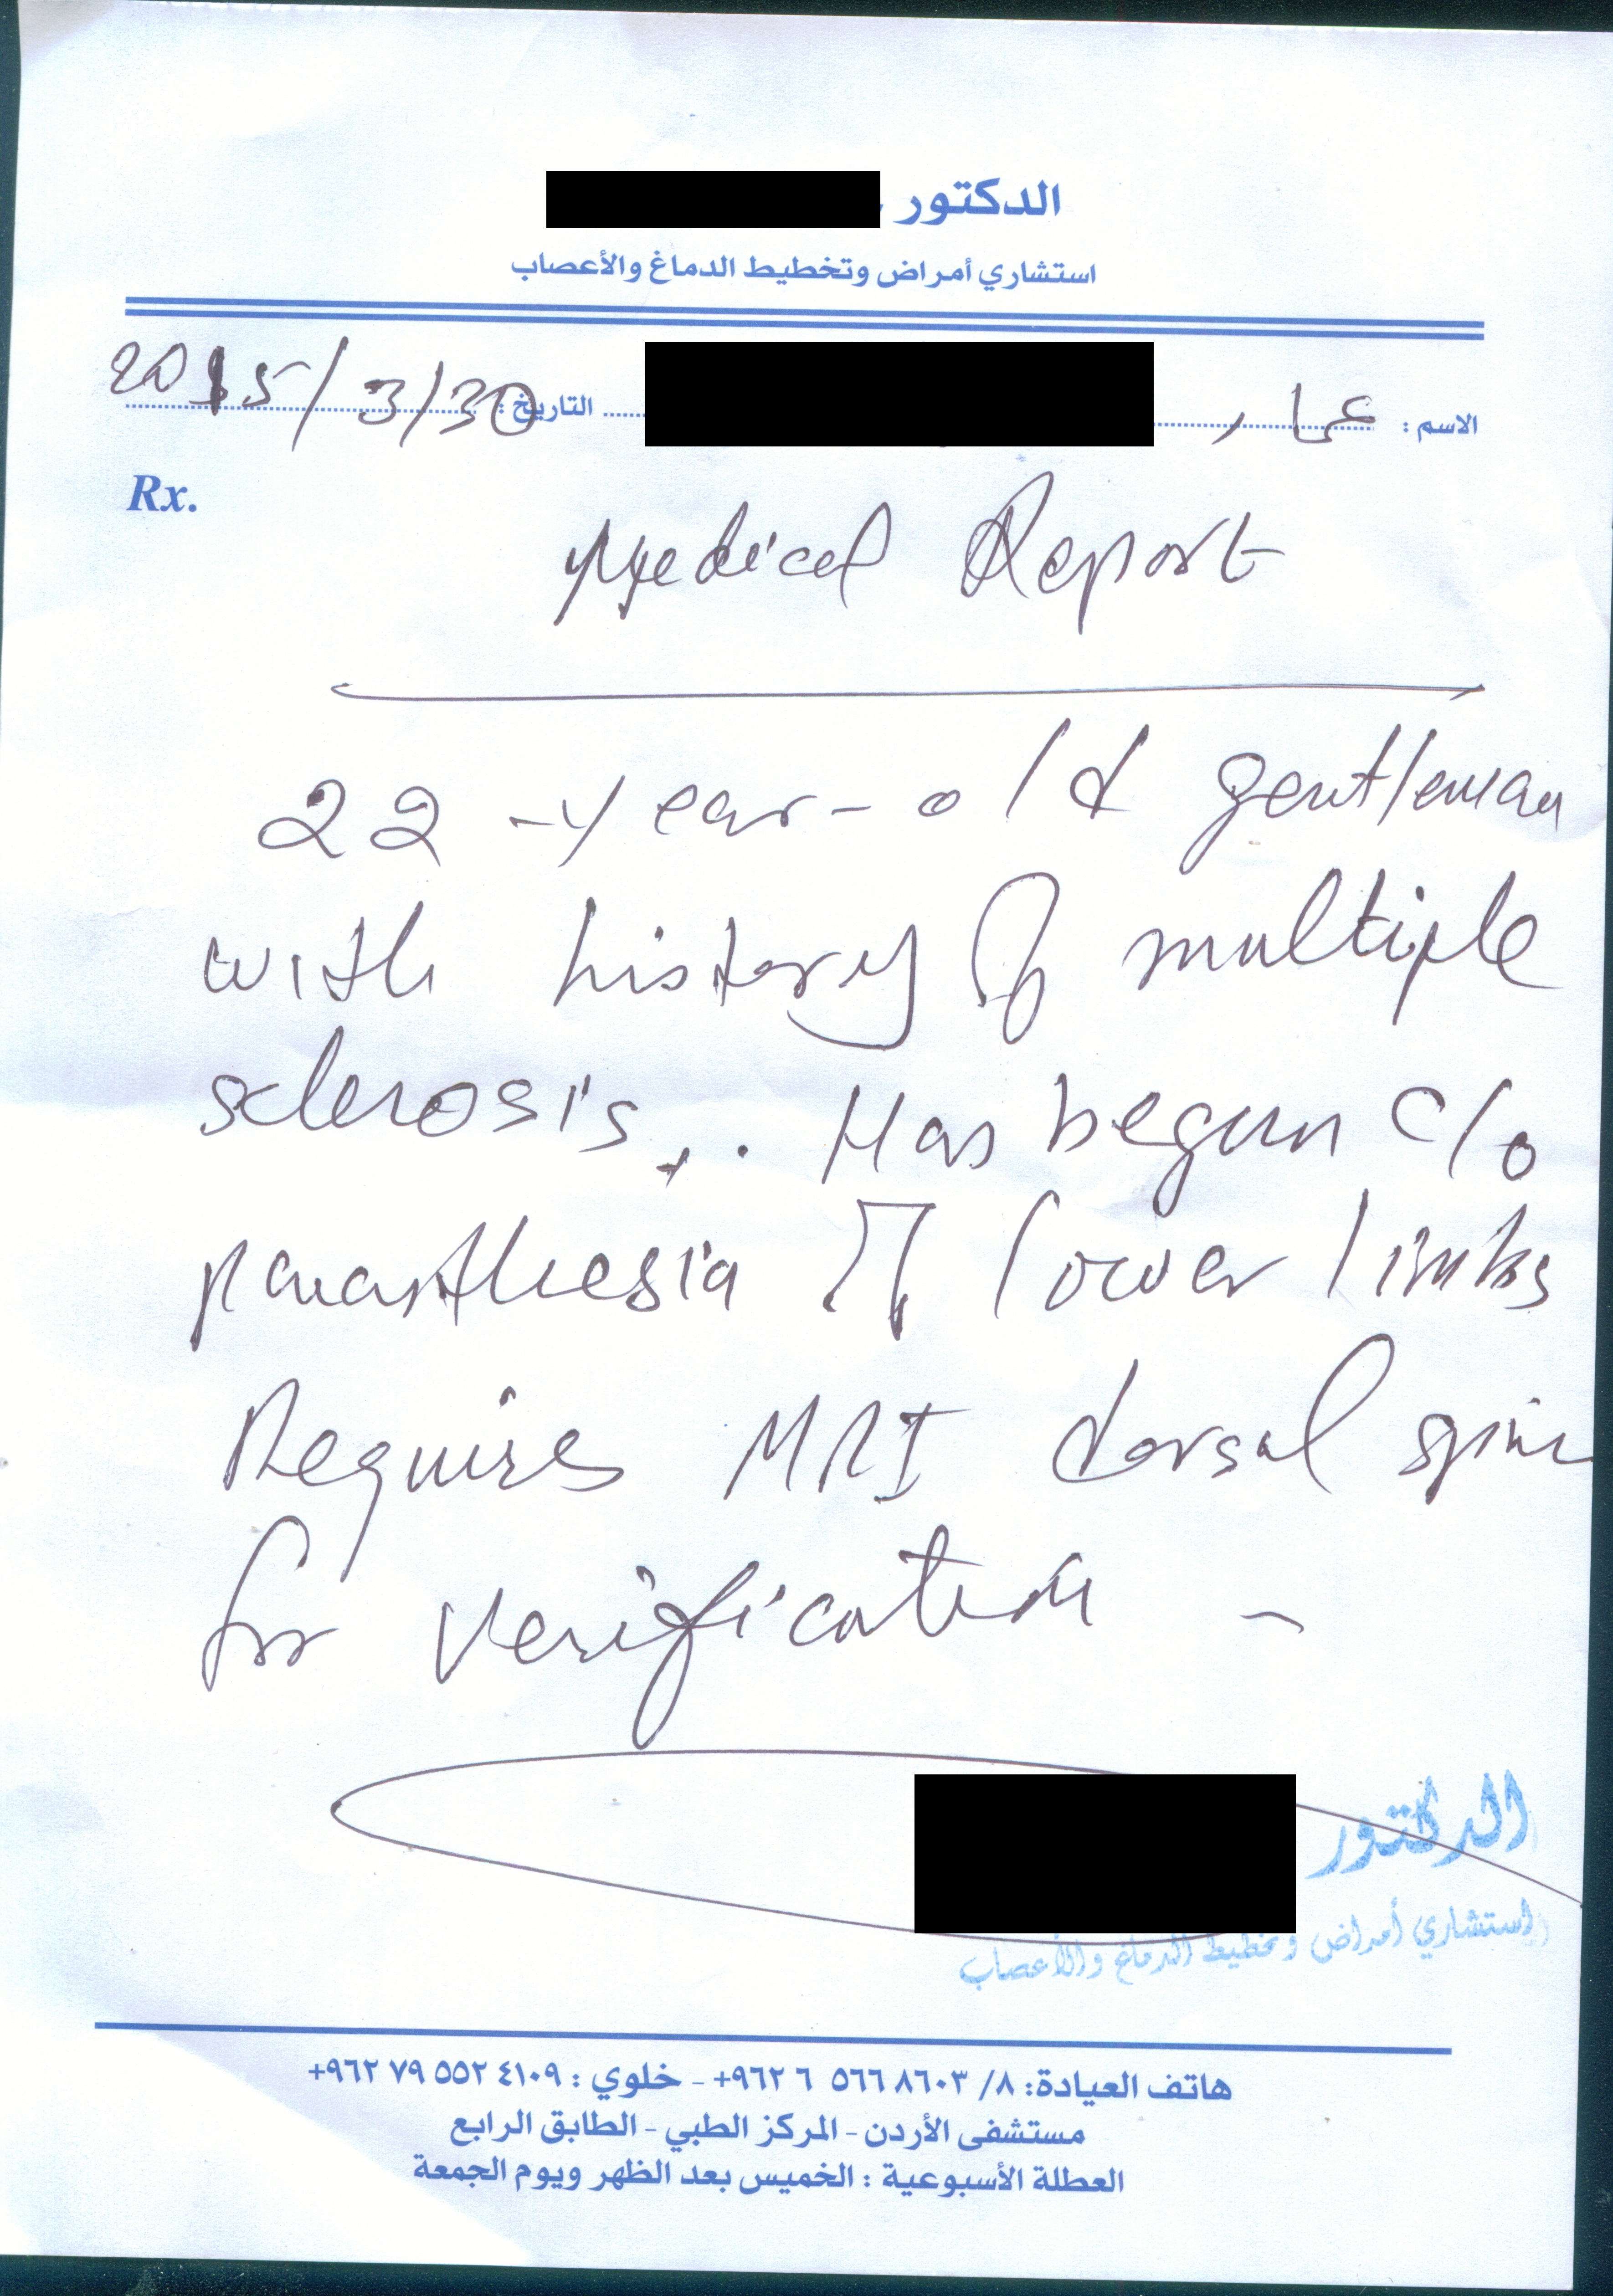 الدكتور
استشاري أمراض وتخطيط الدماغ والأعصاب
الاسم : عمار التاريخ : 2015/3/30
Rx.
Medical Report
22-year-old gentleman
with history of multiple
sclerosis. Has begun c/o
parasthesia of lower limbs
Requires MRI dorsal spine
for verification -
الدكتور
استشاري أمراض وتخطيط الدماغ والأعصاب
هاتف العيادة: ٨/ ٥٦٦٨٦٠٣ ٦ ٩٦٢+ - خلوي : ٤١٠٩ ٥٥٢ ٧٩ ٩٦٢+
مستشفى الأردن - المركز الطبي - الطابق الرابع
العطلة الأسبوعية : الخميس بعد الظهر ويوم الجمعة